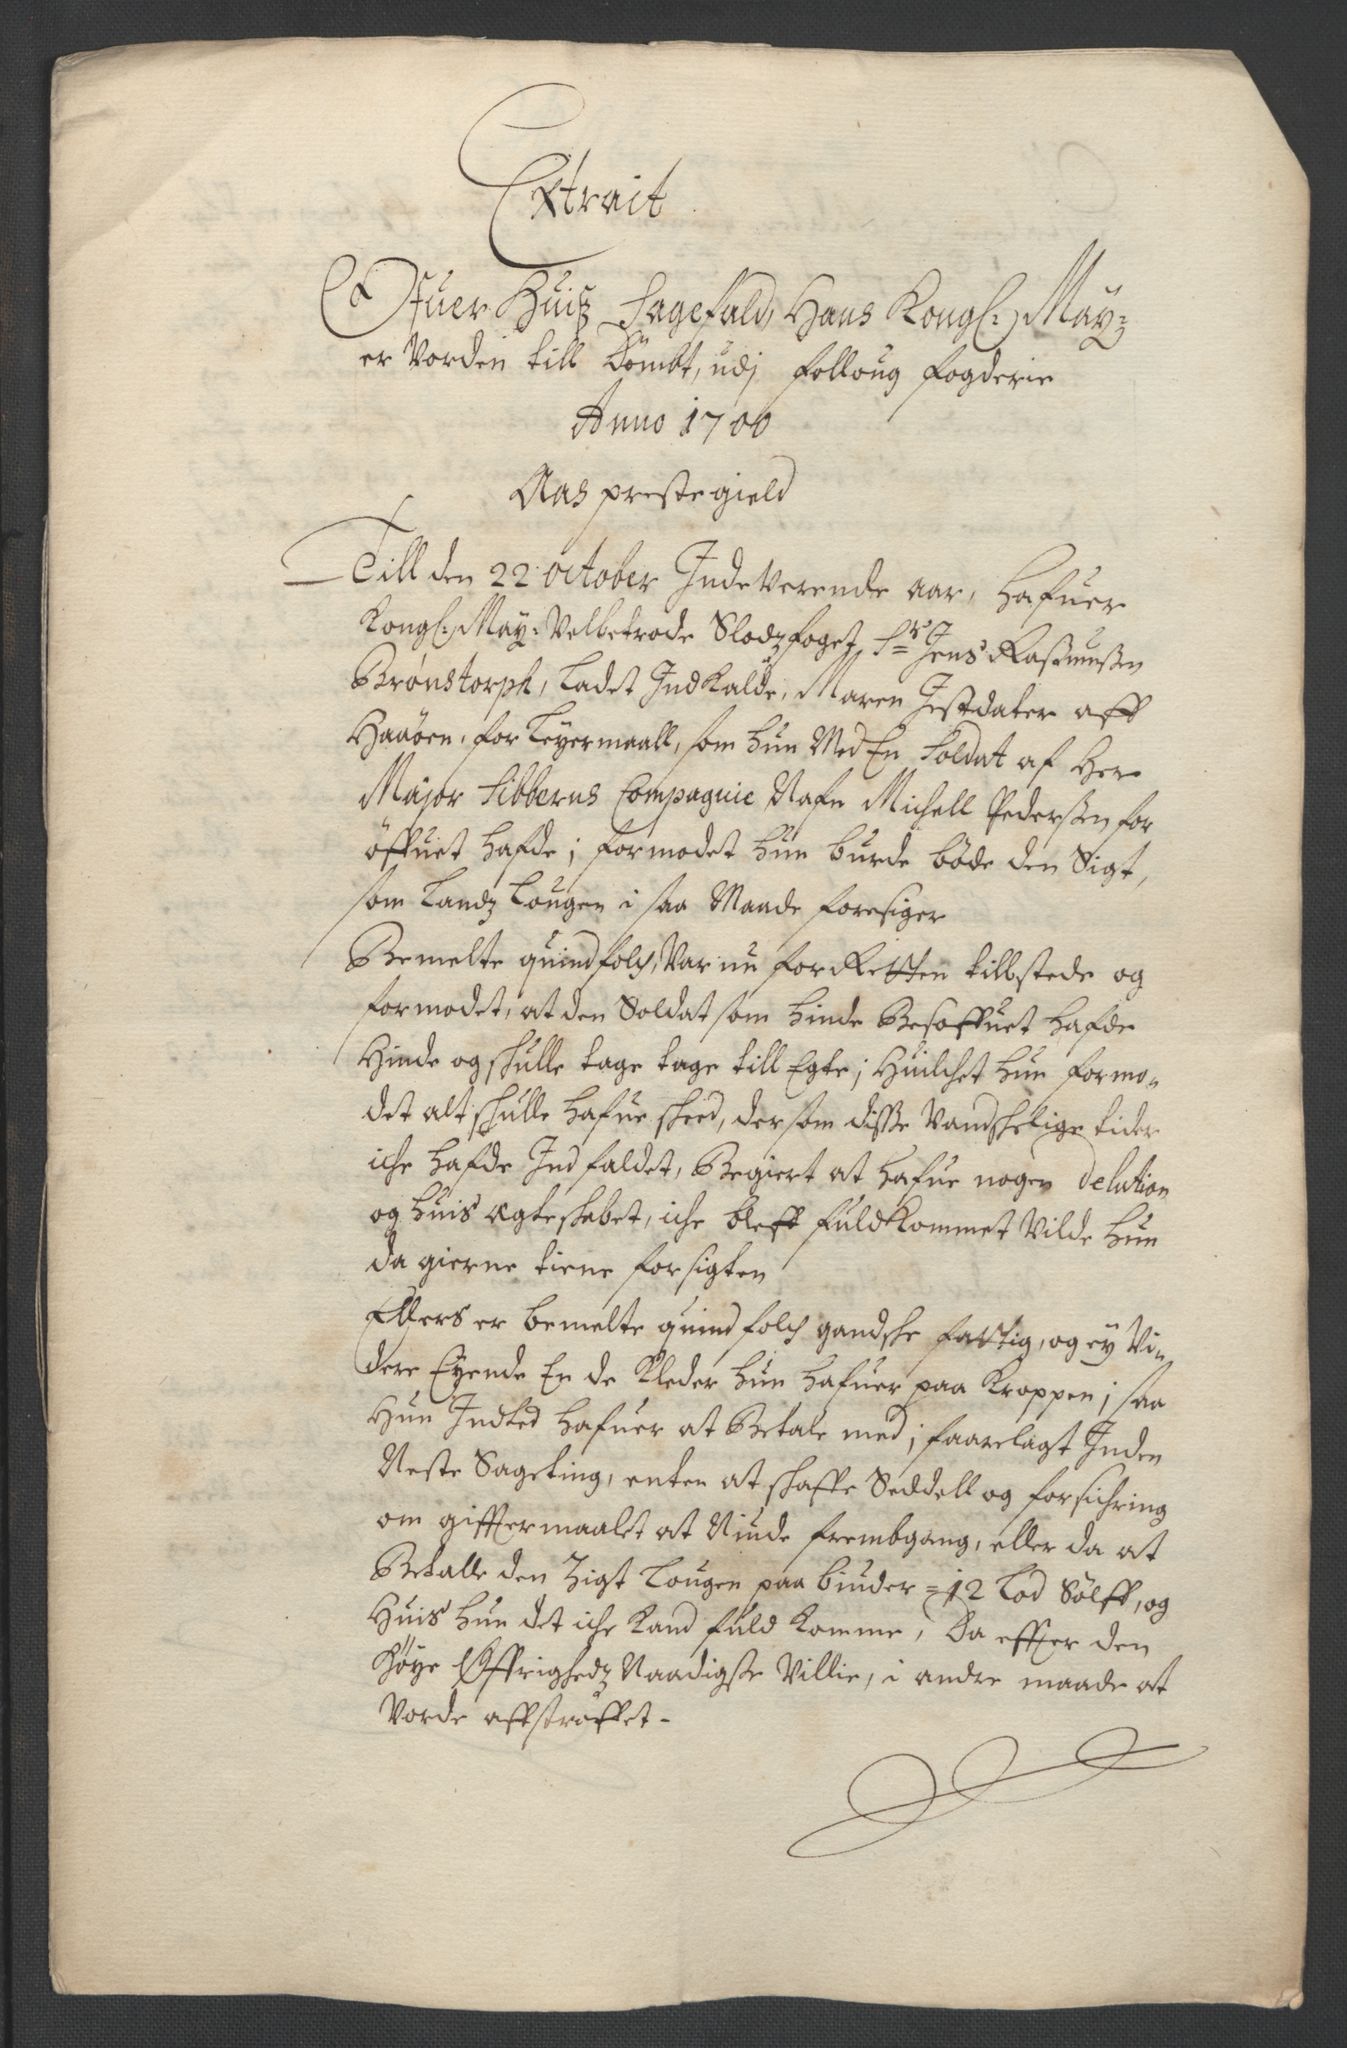 Extrait
Ofuer Huis Sagefald, Hans Kongl: May:
er Vorden till Dömbt, udj Folloug fogderie
Anno 1700
Aas prestegield
Till den 22 October Indeverende aar, hafuer
Kongl: May: Velbetrode Slodzfoget Sr Jens Rasmussen
Brønstorph, ladet Indkalde, Maren Jestdater aff
Haaöen, for Leyermaall, som hun Med En Soldat af Her
Major Sibberns Compagnie Nafn Michell Pedersen for
öffuet hafde; formodet hun burde böde den Sigt,
som Landz Lougen i saa Maade foresiger
Bemelte quindfolch, Var nu for Retten tillstede og
formodet, at den Soldat som hinde Besoffuet hafde
Hinde og skulle tage tage till Egte; Huilchet hun formo-
det alt skulle hafue skeed, dersom disse Vanskelige tider
iche hafde Indfaldet, Begiert at hafue nogen delation
og huis ægteskabet, iche bleff fuldkommet Vilde hun
da gierne tiene for sigten
Ellers er bemelte quindfolch gandske fattig, og ey Vi-
dere Eyende En de Kleder hun hafuer paa Kroppen; saa
Hun Indted hafuer at Betale med; faarelagt Inden
Neste Sageting, enten at skaffe Seddell og forsichring
om gifftermaalet at Niude frembgang, eller da at
Betalle den Sigt Lougen paa binder = 12 Lod Sölff, og
Huis hun det iche Kand fuld Komme, Da effter den
Höye Öffrighedz Naadigste Villie, i andre maade at
Vorde affstraffet -